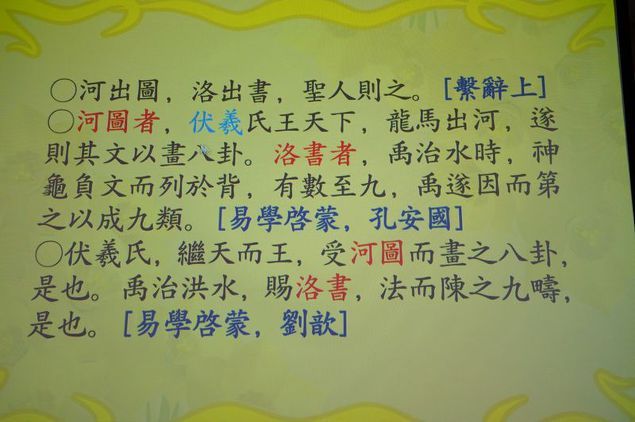 ○河出圖，洛出書，聖人則之。[繫辭上]
○河圖者，伏羲氏王天下，龍馬出河，遂
則其文以畫八卦。洛書者，禹治水時，神
龜負文而列於背，有數至九，禹遂因而第
之以成九類。[易學啓蒙，孔安國]
○伏羲氏，繼天而王，受河圖而畫之八卦，
是也。禹治洪水，賜洛書，法而陳之九疇，
是也。[易學啓蒙，劉歆]